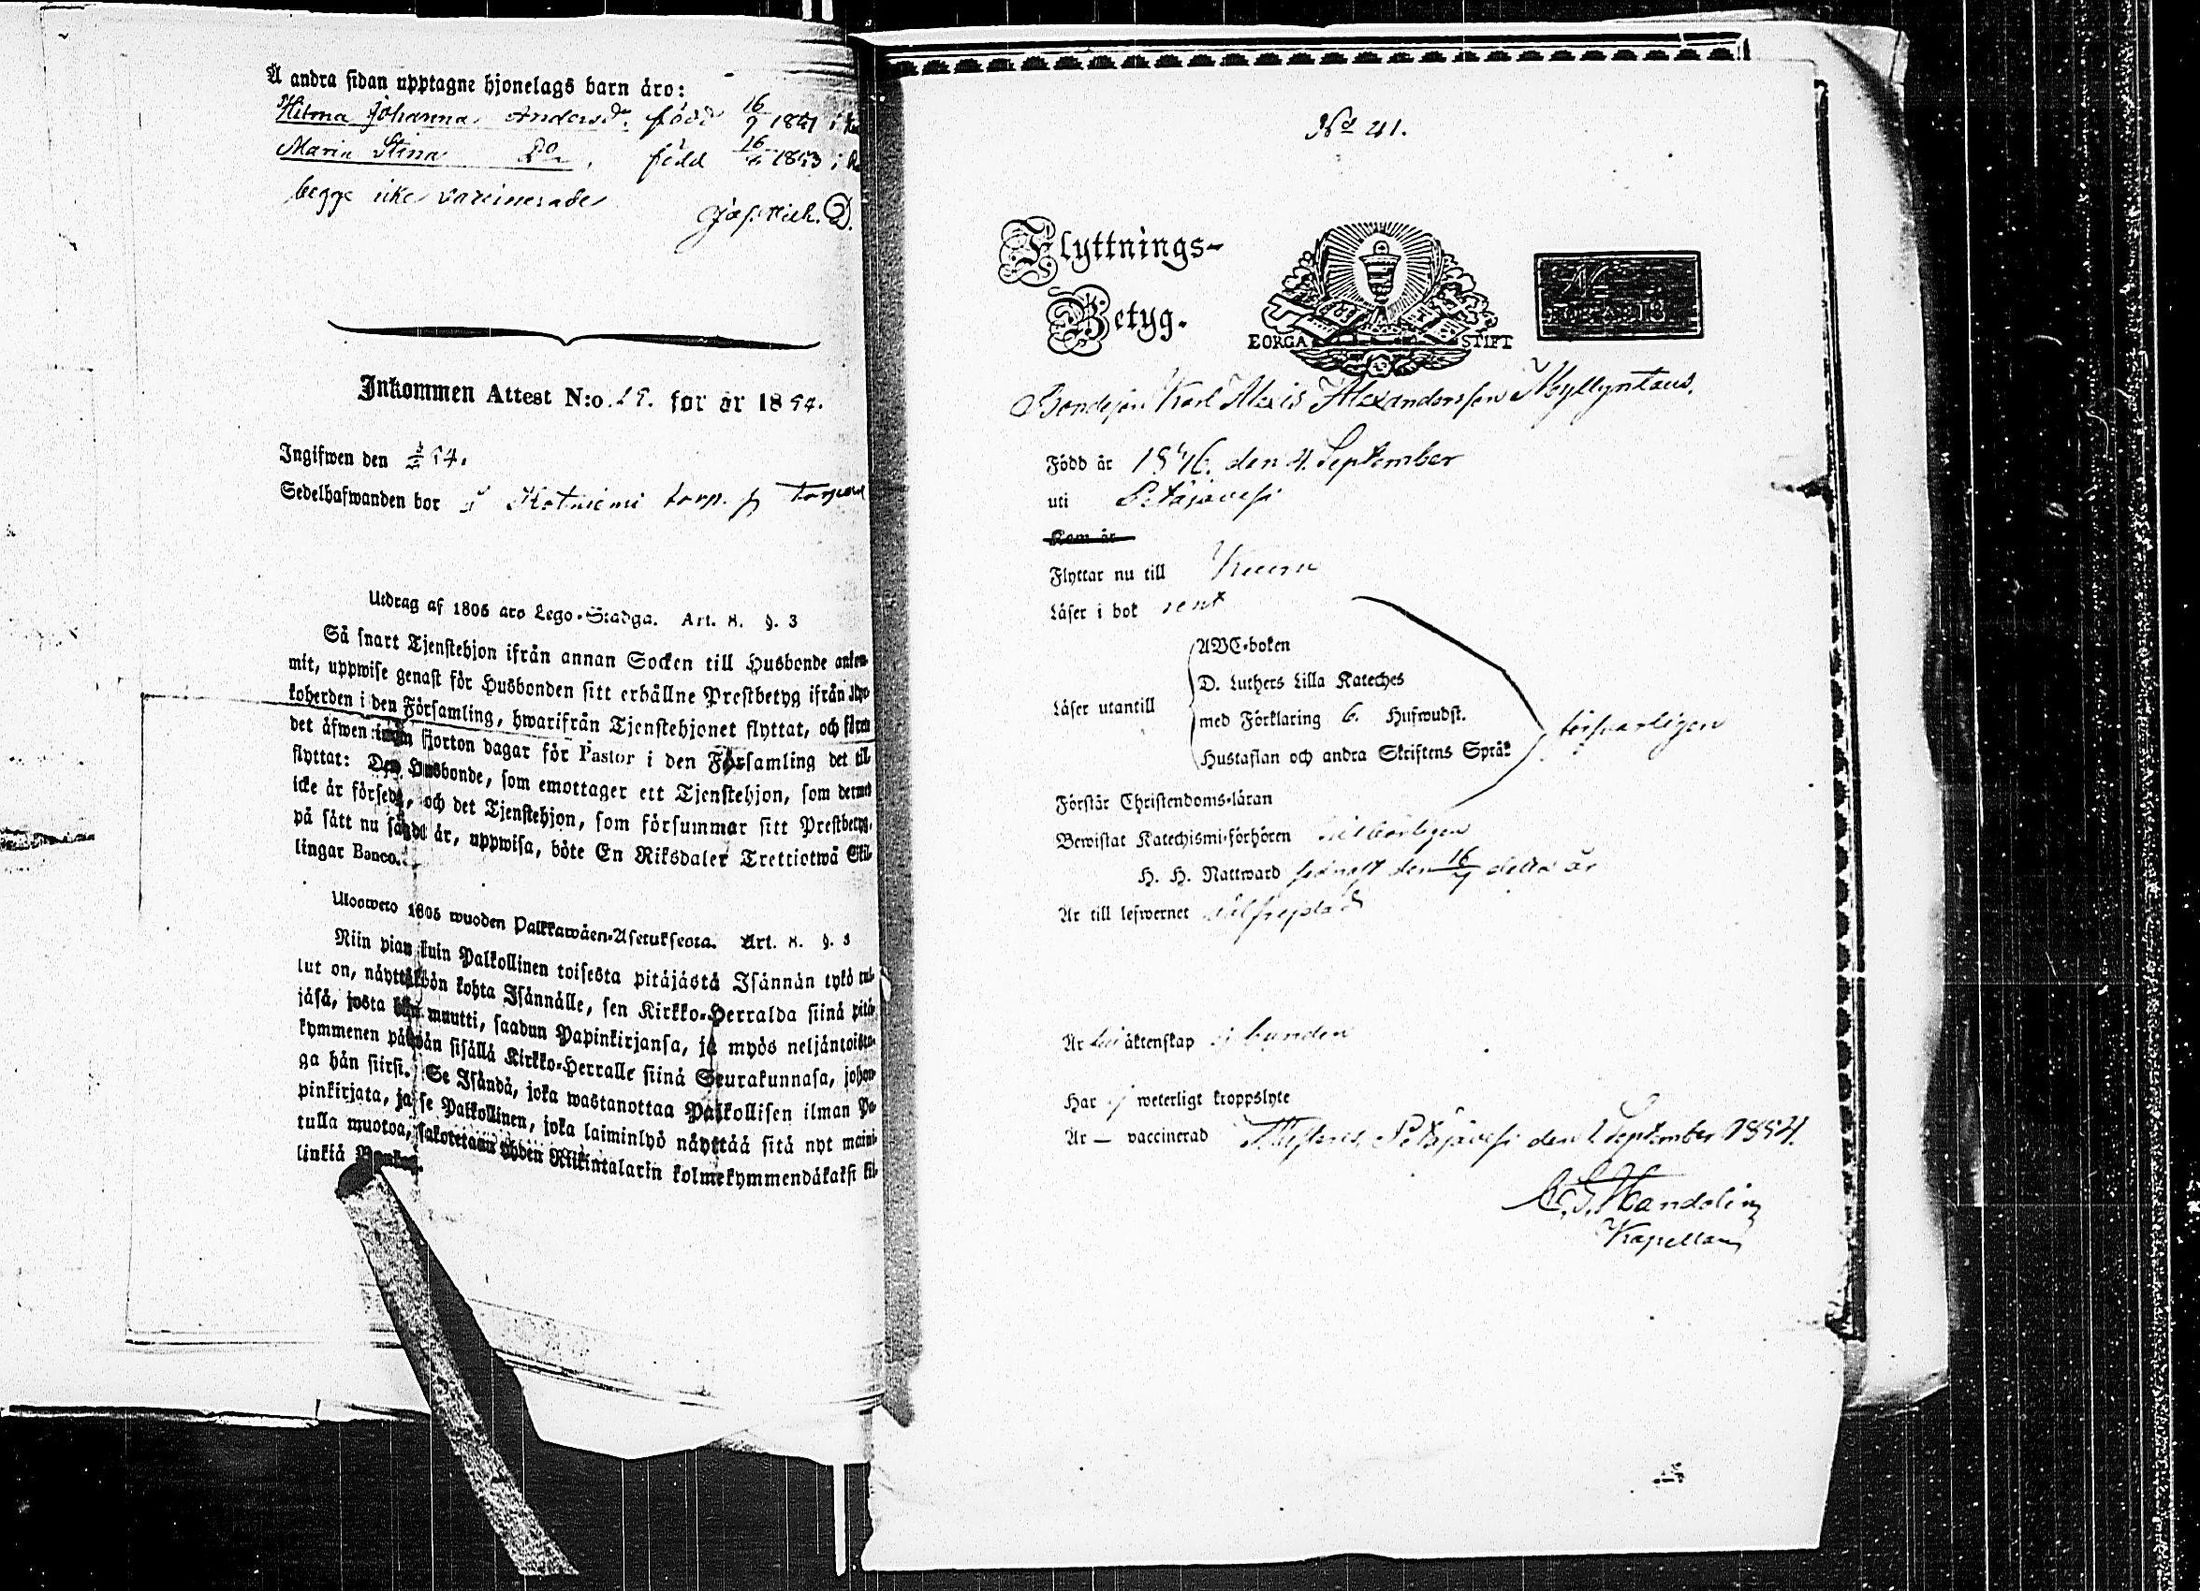 Å andra sidan upptagne hjonelags barn äro:
Hilma Johanna Andersdr. född 16/9 1851 i
Maria Stina Do, född 16 1853 i
begge icke vaccinerade
Inkommen Attest N:o 19. för år 1854.
Ingifwen den 54.
Sedelhafwanden bor å Kotniemi torp.
Utdrag af 1805 års Lego-Stadga. Art. 8. §. 3
Så snart Tjenstehjon ifrån annan Socken till Husbonde ankom-
mit, uppwise genast för Husbonden sitt erhållne Prestbetyg ifrån Kyr-
koherden i den Församling, hwarifrån Tjenstehjonet flyttat, och före
det äfwen inom fjorton dagar för Pastor i den Församling det till
flyttat: Den Husbonde, som emottager ett Tjenstehjon, som dermed
icke är försedt, och det Tjenstehjon, som försummar sitt Prestbetyg,
på sätt nu sagdt är, uppwisa, böte En Riksdaler Trettiotwå Skil-
lingar Banco.
Ulosweto 1805 wuoden Palkkawäen-Asetuksesta. Art. 8. §. 3
Niin pian kuin Palkollinen toisesta pitäjästä Isännän tykö tul-
lut on, näyttäköön kohta Isännälle, sen Kirkko-Herralda siinä pitä-
jäsä, josta hän muutti, saadun Papinkirjansa, ja myös neljäntoista-
kymmenen päiwän sisällä Kirkko-Herralle siinä Seurakunnasa, johon-
ga hän siirsi. Se Isändä, joka wastanottaa Palkollisen ilman Pa-
pinkirjata, ja se Palkollinen, joka laiminlyö näyttää sitä nyt maini-
tulla muotoa, sakotetaan yhden Riikintalarin kolmekymmendäkaksi kil-
linkiä Bankos.
No 41.
Flyttnings-
Betyg.
BORGÅ STIFT
Bondeson Karl Alexis Alexandersson Myllyntaus.
Född år 1846. den 4. September
uti Petäjävesi
Kom år
Flyttar nu till Keuru
Läser i bok rent
Läser utantill
ABC-boken
D. Luthers Lilla Kateches
med Förklaring 6. Hufwudst.
Hustaflan och andra Skriftens Språk
försvarligen
Förstår Christendoms-läran
Bewistat Katechismi-förhören tillbörligen
H. H. Nattward senast den 16/7 detta år
Är till lefwernet välfrejdad
Är till äktenskap obunden
Har ej weterligt kroppslyte
Är — vaccinerad Petäjävesi den 1 September 1854.
Kapellan